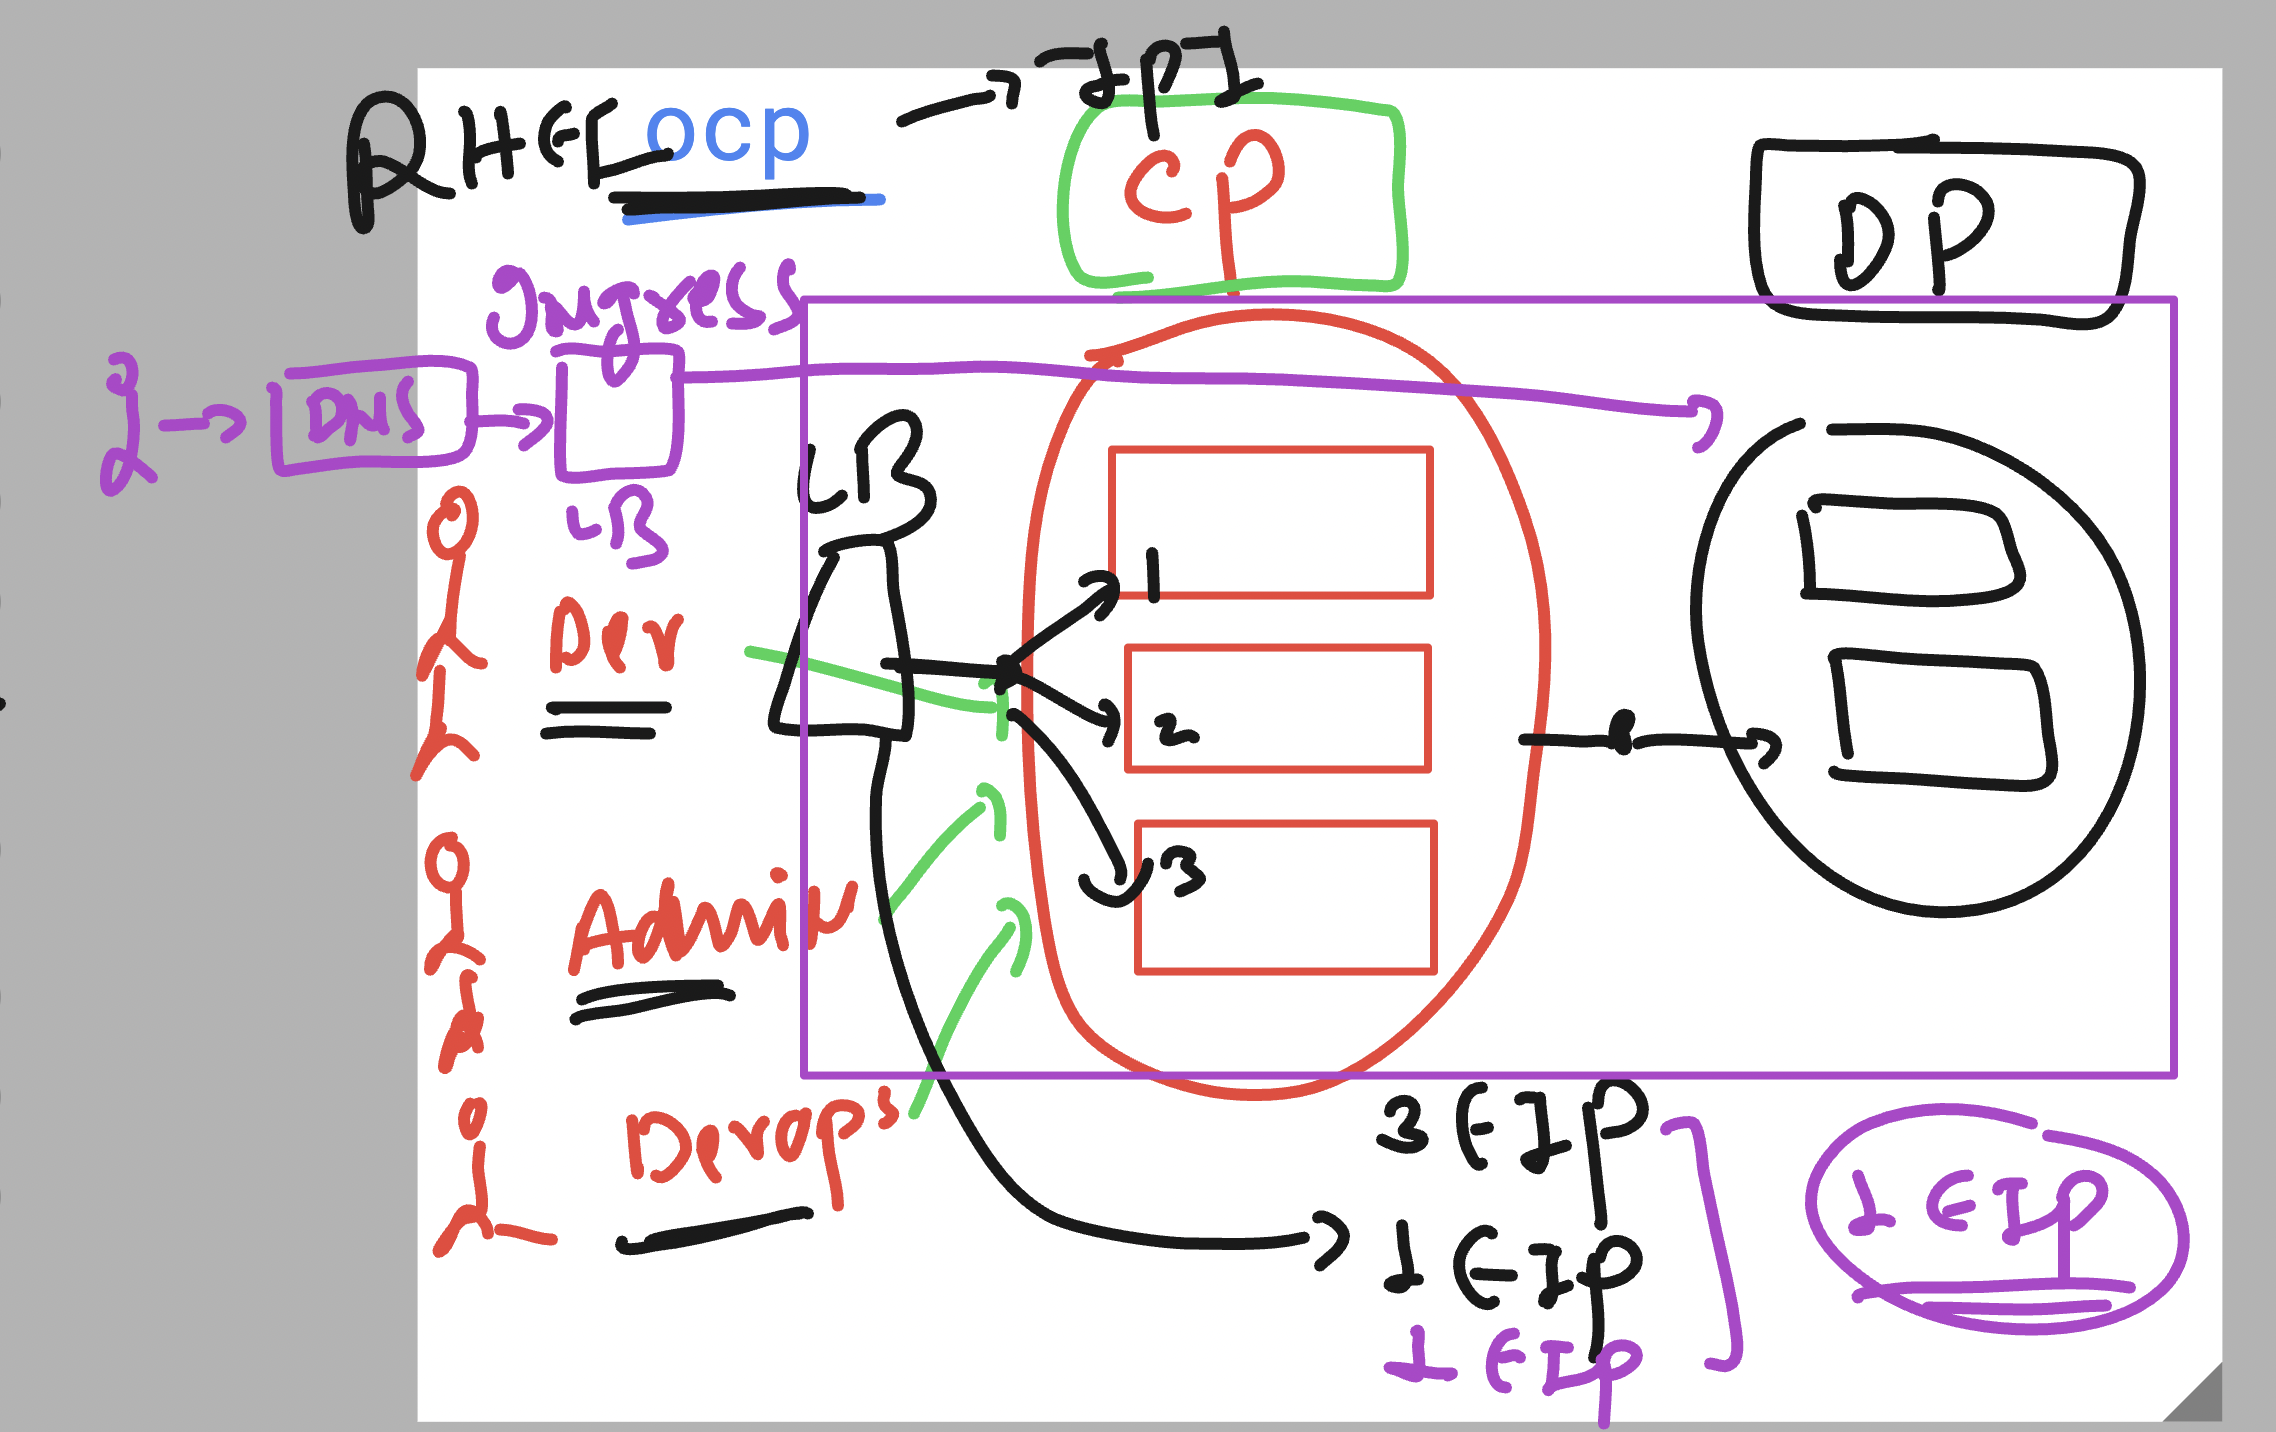 RHEL ocp → IPI
CP
DP
Ingress
DNS
LB
LB
Dev
1
2
3
Admin
Devops
3 EIP
1 EIP
1 EIP
1 EIP